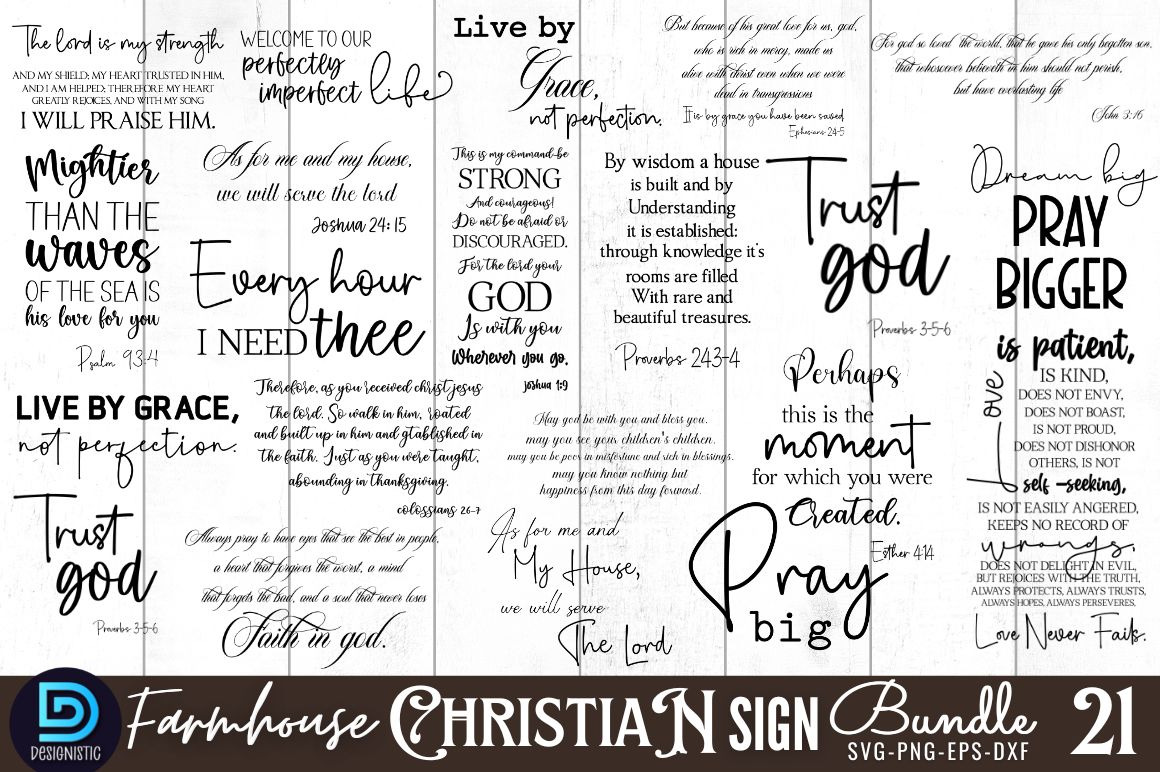 The lord is my strength
AND MY SHIELD; MY HEART TRUSTED IN HIM,
AND I AM HELPED; THEREFORE MY HEART
GREATLY REJOICES, AND WITH MY SONG
I WILL PRAISE HIM.
WELCOME TO OUR
perfectly
imperfect life
Live by
Grace,
not perfection.
But because of his great love for us, god,
who is rich in mercy, made us
alive with christ even when we were
dead in transgressions
It is by grace you have been saved
Ephesians 24-5
For god so loved the world, that he gave his only begotten son,
that whosoever believeth in him should not perish,
but have everlasting life
John 3:16
Mightier
THAN THE
waves
OF THE SEA IS
his love for you
Psalm 93:4
As for me and my house,
we will serve the lord
Joshua 24:15
Every hour
I NEED thee
This is my command-be
STRONG
And courageous!
Do not be afraid or
DISCOURAGED.
For the lord your
GOD
Is with you
Wherever you go.
Joshua 1:9
By wisdom a house
is built and by
Understanding
it is established:
through knowledge it's
rooms are filled
With rare and
beautiful treasures.
Proverbs 243-4
Trust
god
Proverbs 3-5-6
Dream big
PRAY
BIGGER
LIVE BY GRACE,
not perfection.
Therefore, as you received christ jesus
the lord. So walk in him, roated
and built up in him and gtablished in
the faith. Just as you were taught,
abounding in thanksgiving.
colossians 26-7
May god be with you and bless you.
may you see your children's children.
may you be poor in misfortune and rich in blessings.
may you know nothing but
happiness from this day forward.
Perhaps
this is the
moment
for which you were
Created.
Esther 4:14
Love
is patient,
IS KIND,
DOES NOT ENVY,
DOES NOT BOAST,
IS NOT PROUD,
DOES NOT DISHONOR
OTHERS, IS NOT
self -seeking,
IS NOT EASILY ANGERED,
KEEPS NO RECORD OF
wrongs,
DOES NOT DELIGHT IN EVIL,
BUT REJOICES WITH THE TRUTH,
ALWAYS PROTECTS, ALWAYS TRUSTS,
ALWAYS HOPES, ALWAYS PERSEVERES,
Love Never Fails.
Trust
god
Proverbs 3-5-6
Always pray to have eyes that see the best in people,
a heart that forgives the worst, a mind
that forgets the bad, and a soul that never loses
Faith in god.
As for me and
My House,
we will serve
The Lord
Pray
big
DESIGNISTIC
Farmhouse CHRISTIAN SIGN Bundle 21
SVG-PNG-EPS-DXF